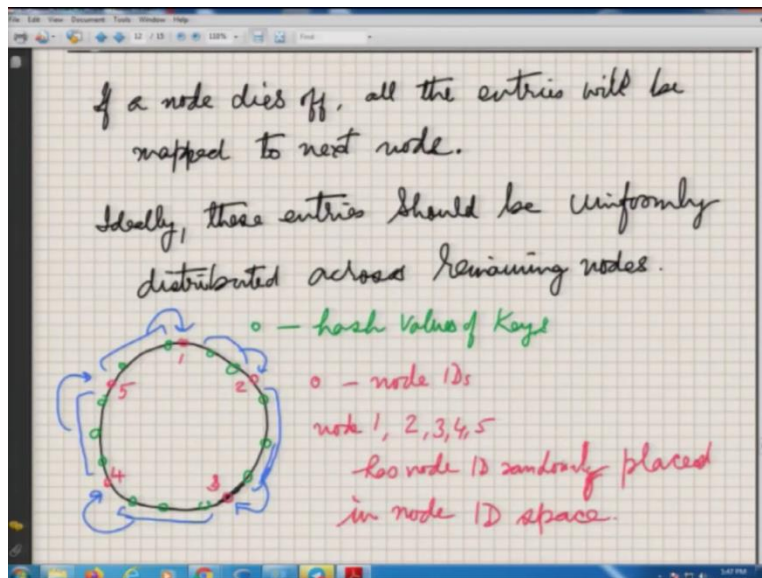 File Edit View Document Tools Window Help
12 / 15 110% Find
If a node dies off, all the entries will be
mapped to next node.
Ideally, these entries should be uniformly
distributed across remaining nodes.
o - hash values of Keys
1
2
5
o - node IDs
node 1, 2, 3, 4, 5
4
3
has node ID randomly placed
in node ID space.
5:47 PM